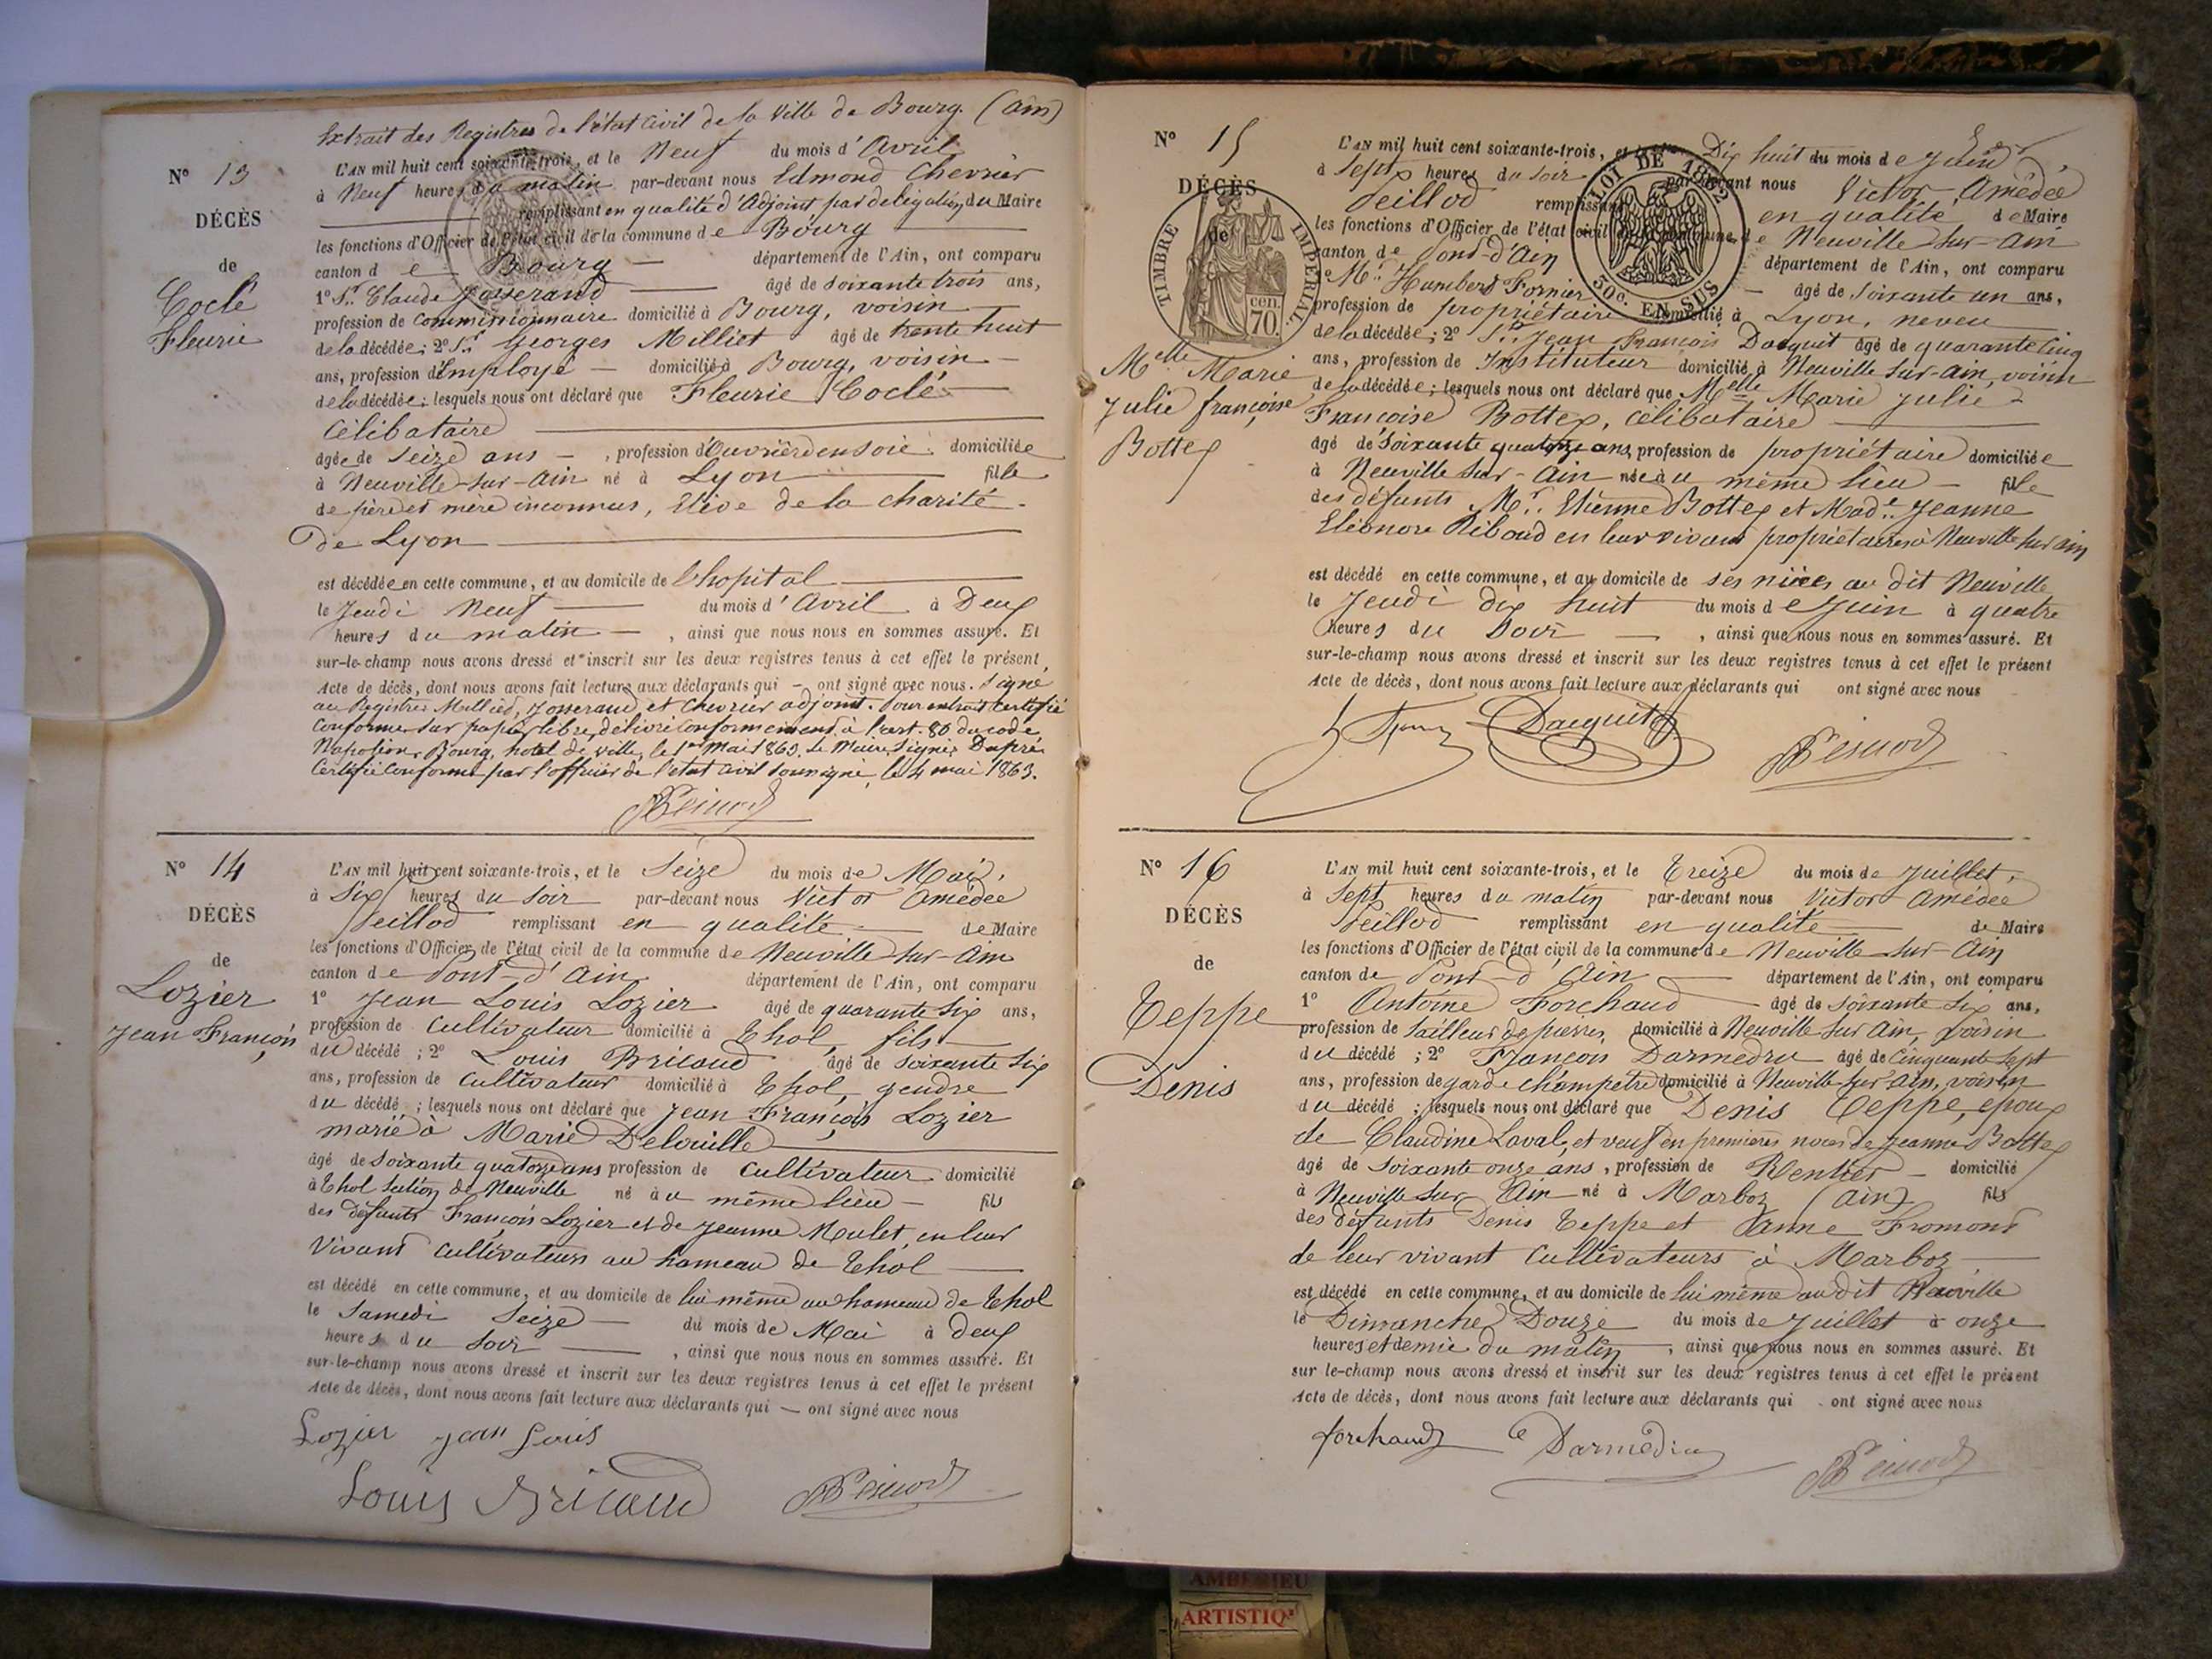 Extrait des Registres de l'état Civil de la Ville de Bourg. (Ain)
N° 13
DÉCÈS
de
Coclé
Fleurie
L'AN mil huit cent soixante-trois, et le Neuf du mois d'Avril
à Neuf heures du matin par-devant nous Edmond Chevrier
remplissant en qualité d'Adjoint par délégation du Maire
les fonctions d'Officier de l'état civil de la commune de Bourg
canton de Bourg département de l'Ain, ont comparu
1° Sr. Claude Josserand âgé de soixante trois ans,
profession de Commissionnaire domicilié à Bourg, voisin
de la décédée; 2° Sr. Georges Milliet âgé de trente huit
ans, profession d'Employé domicilié à Bourg, voisin
de la décédée; lesquels nous ont déclaré que Fleurie Coclé
Célibataire
âgée de seize ans, profession d'Ouvrière en soie domiciliée
à Neuville-sur-Ain né à Lyon fille
de père et mère inconnus, Elève de la charité
de Lyon
est décédée en cette commune, et au domicile de l'hopital
le Jeudi Neuf du mois d'Avril à Deux
heures du matin, ainsi que nous nous en sommes assuré. Et
sur-le-champ nous avons dressé et inscrit sur les deux registres tenus à cet effet le présent
Acte de décès, dont nous avons fait lecture aux déclarants qui ont signé avec nous. Signé
au Registre Milliet, Josserand et Chevrier adjoint. Pour extrait certifié
conforme sur papier libre, délivré conformément à l'art. 80 du code
Napoléon, Bourg, hotel de ville, le 1er Mai 1863. Le Maire, Signé: Dupré
Certifié conforme par l'officier de l'état civil soussigné, le 4 mai 1863.
N° 14
DÉCÈS
de
Lozier
Jean François
L'AN mil huit cent soixante-trois, et le Seize du mois de Mai,
à Six heures du soir par-devant nous Victor Amédée
Peillod remplissant en qualité de Maire
les fonctions d'Officier de l'état civil de la commune de Neuville sur-Ain
canton de Pont-d'Ain département de l'Ain, ont comparu
1° Jean Louis Lozier âgé de quarante six ans,
profession de Cultivateur domicilié à Thol, fils
du décédé; 2° Louis Bricaud âgé de soixante six
ans, profession de Cultivateur domicilié à Thol, gendre
du décédé; lesquels nous ont déclaré que Jean François Lozier
marié à Marie Delouille
âgé de soixante quatorze ans profession de Cultivateur domicilié
à Thol Section de Neuville né au même lieu fils
des défunts François Lozier et de Jeanne Mulet, en leur
vivant Cultivateurs au hameau de Thol
est décédé en cette commune, et au domicile de lui même au hameau de Thol
le Samedi Seize du mois de Mai à deux
heures du Soir, ainsi que nous nous en sommes assuré. Et
sur-le-champ nous avons dressé et inscrit sur les deux registres tenus à cet effet le présent
Acte de décès, dont nous avons fait lecture aux déclarants qui ont signé avec nous
Lozier Jean Louis
Louis Bricaud
N° 15
DÉCÈS
de
TIMBRE IMPÉRIAL
cen. 70.
LOI DE 1862
50c. EN SUS
Melle Marie
Julie françoise
Bottex
L'AN mil huit cent soixante-trois, et le Dix huit du mois de Juin,
à Sept heures du soir par-devant nous Victor Amédée
Peillod remplissant en qualité de Maire
les fonctions d'Officier de l'état civil de la commune de Neuville sur-Ain
canton de Pont-d'Ain département de l'Ain, ont comparu
1° Mr. Humbert Fornier âgé de soixante un ans,
profession de propriétaire domicilié à Lyon, neveu
de la décédée; 2° Sr. Jean François Dacquit âgé de quarante cinq
ans, profession de Instituteur domicilié à Neuville sur-Ain, voisin
de la décédée; lesquels nous ont déclaré que Melle Marie Julie
Françoise Bottex, célibataire
âgé de soixante quatorze ans, profession de propriétaire domiciliée
à Neuville sur-Ain née au même lieu fille
des défunts Mr. Etienne Bottex et Made. Jeanne
Eléonore Riboud en leur vivant propriétaires à Neuville sur ain
est décédé en cette commune, et au domicile de ses nièces au dit Neuville
le Jeudi dix huit du mois de Juin à quatre
heures du Soir, ainsi que nous nous en sommes assuré. Et
sur-le-champ nous avons dressé et inscrit sur les deux registres tenus à cet effet le présent
Acte de décès, dont nous avons fait lecture aux déclarants qui ont signé avec nous
Dacquit
N° 16
DÉCÈS
de
Teppe
Denis
L'AN mil huit cent soixante-trois, et le Treize du mois de Juillet,
à Sept heures du matin par-devant nous Victor Amédée
Peillod remplissant en qualité de Maire
les fonctions d'Officier de l'état civil de la commune de Neuville sur-Ain
canton de Pont-d'Ain département de l'Ain, ont comparu
1° Antoine Forchaud âgé de soixante six ans,
profession de tailleur de pierres, domicilié à Neuville sur Ain, voisin
du décédé; 2° François Darmedru âgé de cinquante sept
ans, profession de garde champêtre domicilié à Neuville sur ain, voisin
du décédé; lesquels nous ont déclaré que Denis Teppe, époux
de Claudine Laval, et veuf en premières noces de Jeanne Bottex
âgé de soixante onze ans, profession de Rentier domicilié
à Neuville sur Ain né à Marboz (Ain) fils
des défunts Denis Teppe et Anne Fromont
de leur vivant Cultivateurs à Marboz
est décédé en cette commune, et au domicile de lui même au dit Neuville
le Dimanche Douze du mois de Juillet à onze
heures et demie du matin, ainsi que nous nous en sommes assuré. Et
sur le-champ nous avons dressé et inscrit sur les deux registres tenus à cet effet le présent
Acte de décès, dont nous avons fait lecture aux déclarants qui ont signé avec nous
forchaud Darmedru
AMBERIEU
ARTISTIQ